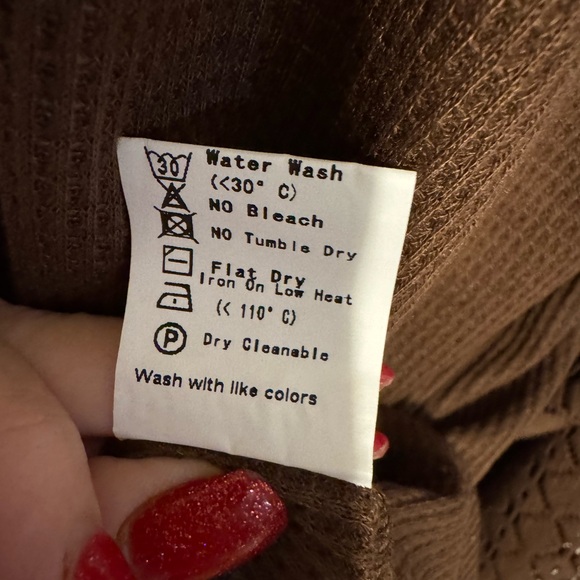 30 Water Wash
(<30° C)
NO Bleach
NO Tumble Dry
Flat Dry
Iron On Low Heat
(< 110° C)
P Dry Cleanable
Wash with like colors